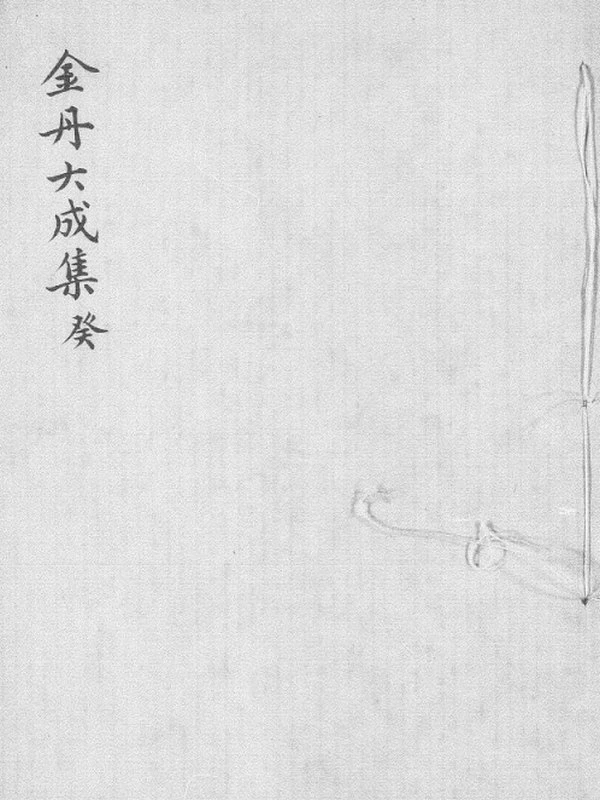 金丹大成集 癸